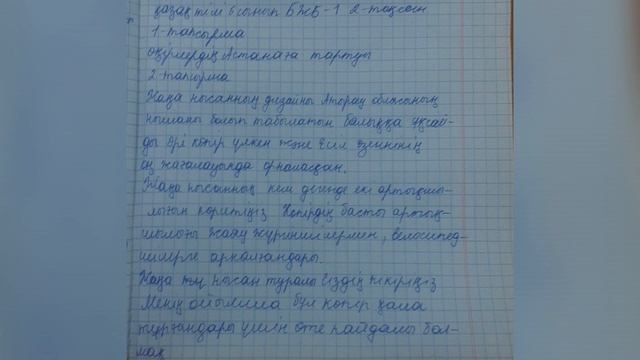 қазақ тілі 6 сынып БЖБ-1 2-тоқсан
1-тапсырма
өңірлердің Астанаға тартуы
2-тапсырма
Жаңа нысанның дизайны Атырау облысының
нышаны болып табылатын балыққа ұқсай-
ды Әрі көпір үлкен және Есіл өзенінің
оң жағалауында орналасқан.
Жаңа нысанның кем дегенде екі артықшы-
лығын көрсетіңіз Көпірдің басты артық-
шылығы жаяу жүргіншілермен, велосипед-
шілерге арналғандары.
Жаңа нысан туралы сіздің пікіріңіз
Менің ойымша бұл көпір қала
тұрғандары үшін өте пайдалы бол-
мақ